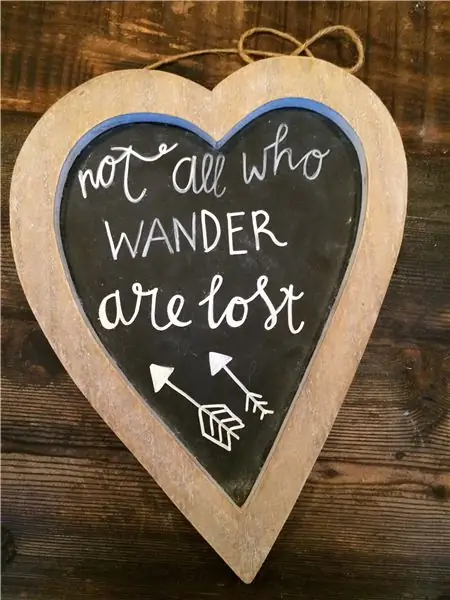 not all who
WANDER
are lost